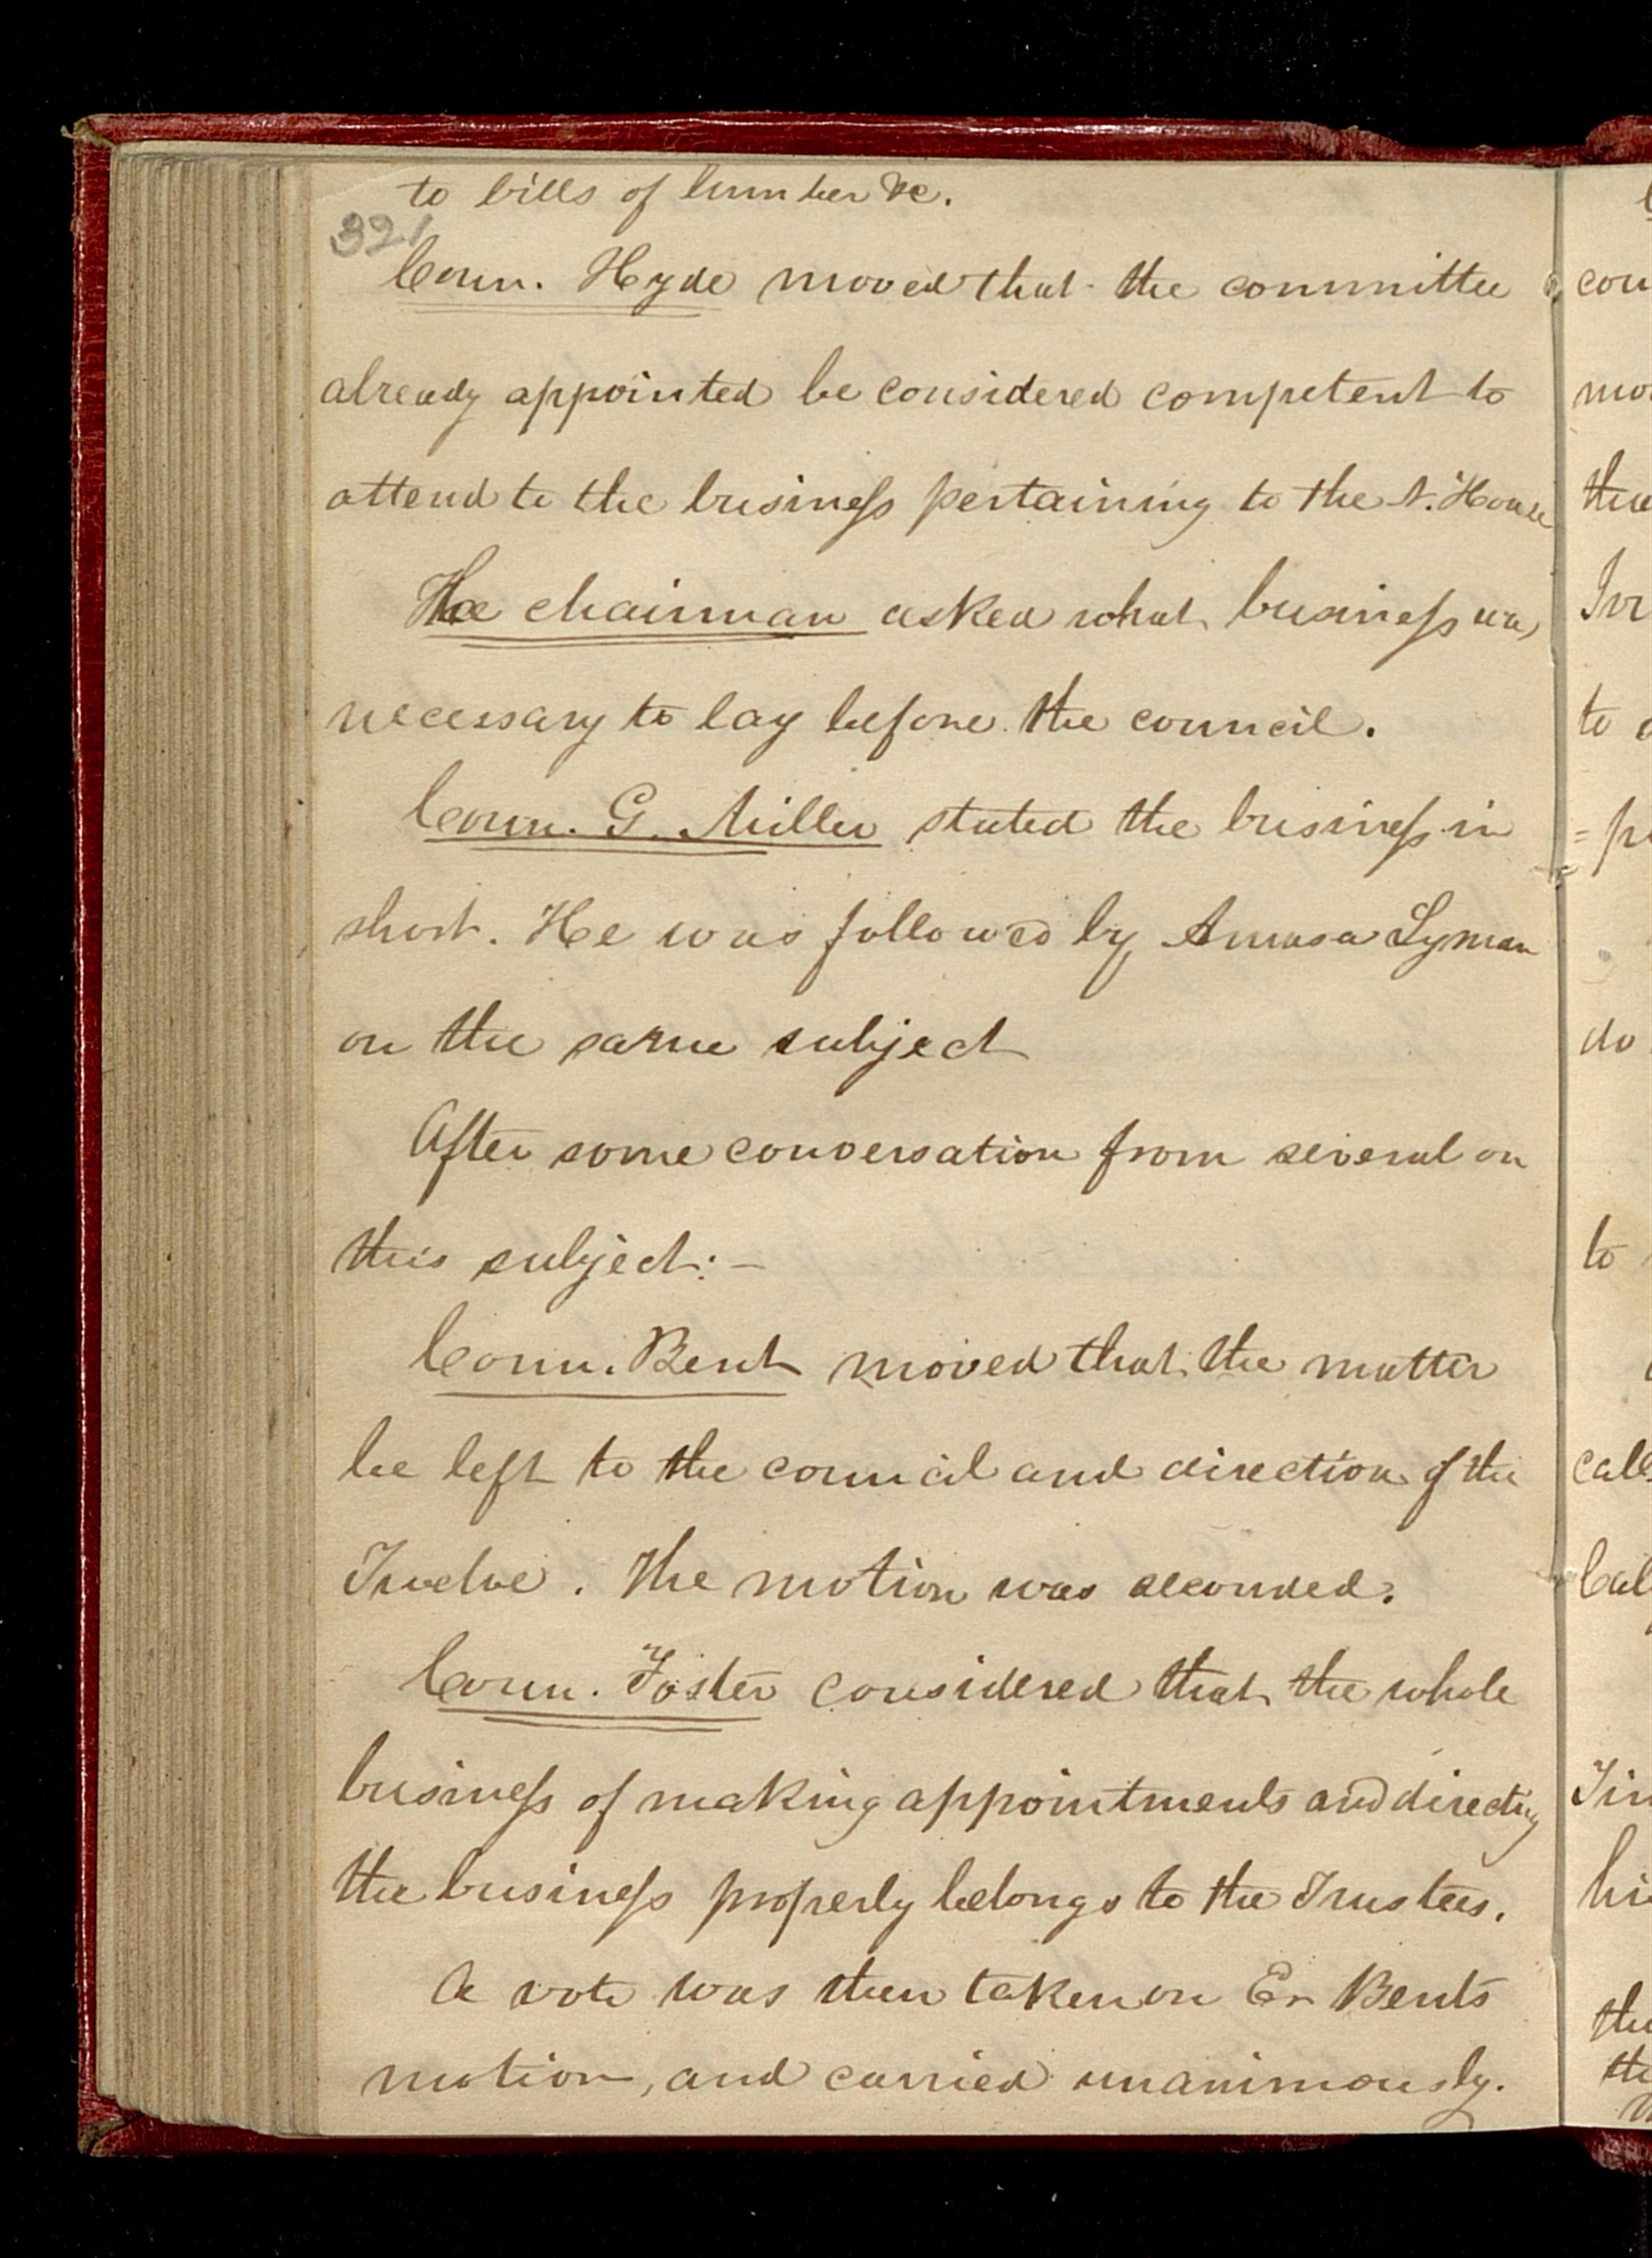 to bills of lumber &c.
321
Coun. Hyde moved that the committee
already appointed be considered competent to
attend to the business pertaining to the N. House
The chairman asked what business was
necessary to lay before the council.
Coun. G. Miller stated the business in
short. He was followed by Amasa Lyman
on the same subject
After some conversation from several on
this subject:—
Coun. Bent moved that the matter
be left to the council and direction of the
Twelve. The motion was seconded.
Coun. Foster considered that the whole
business of making appointments and directing
the business properly belongs to the Trustees.
A vote was then taken on Er Bents
motion, and carried unanimously.
cou
mo
thee
to
do
to
call
hi
the